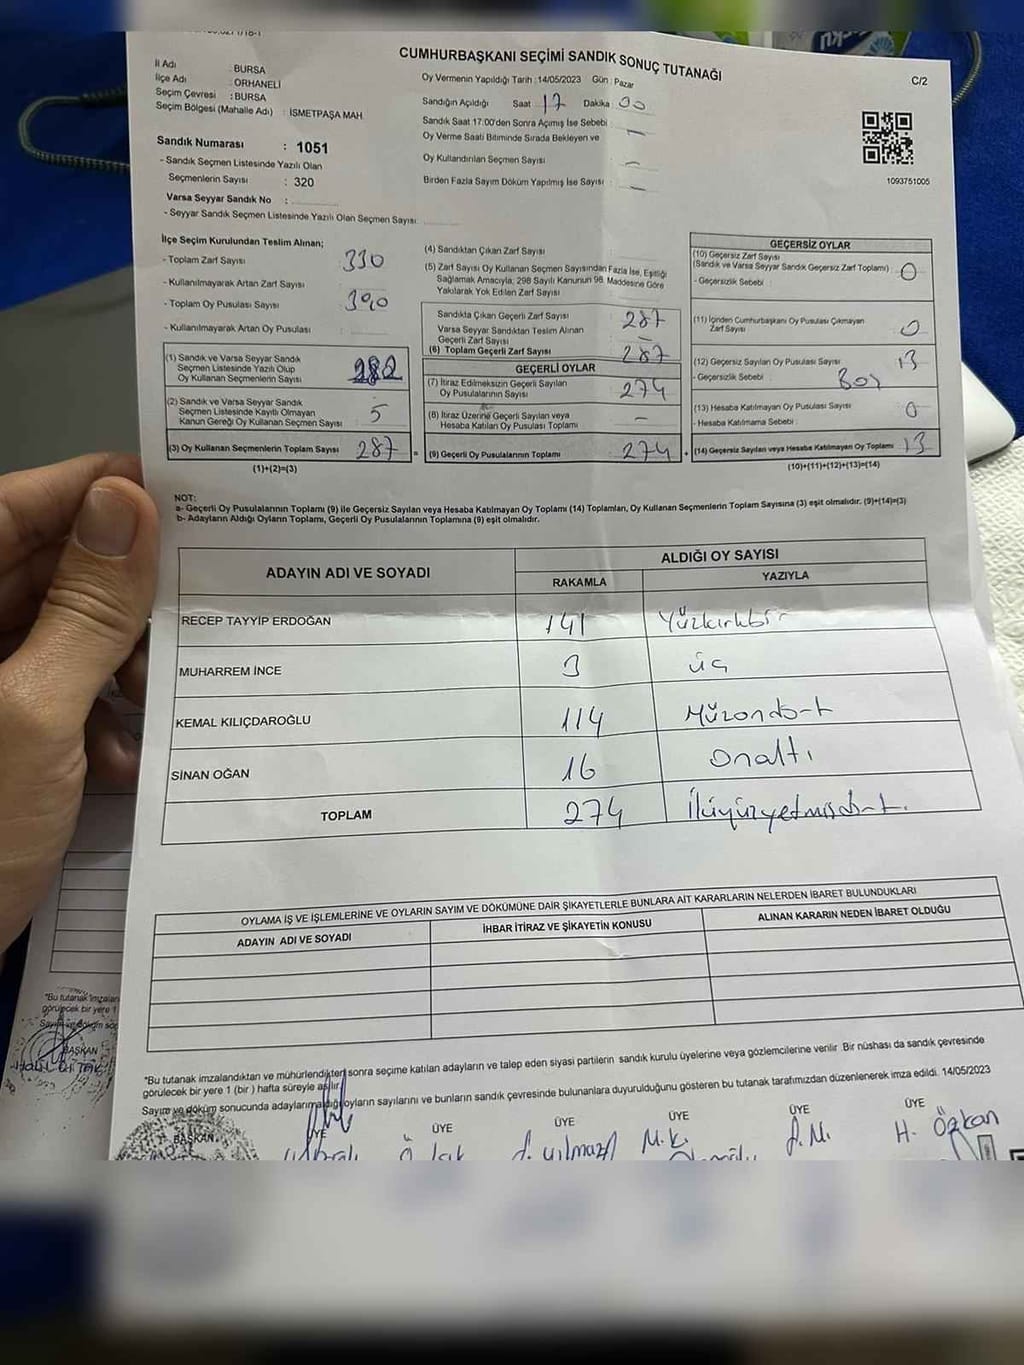 CUMHURBAŞKANI SEÇİMİ SANDIK SONUÇ TUTANAĞI
C/2
İl Adı : BURSA
İlçe Adı : ORHANELİ
Seçim Çevresi : BURSA
Seçim Bölgesi (Mahalle Adı) : İSMETPAŞA MAH.
Sandık Numarası : 1051
- Sandık Seçmen Listesinde Yazılı Olan
Seçmenlerin Sayısı : 320
Varsa Seyyar Sandık No :
- Seyyar Sandık Seçmen Listesinde Yazılı Olan Seçmen Sayısı:
Oy Vermenin Yapıldığı Tarih : 14/05/2023 Gün : Pazar
Sandığın Açıldığı Saat 17 Dakika 00
Sandık Saat 17:00'den Sonra Açımış İse Sebebi : —
Oy Verme Saati Bitiminde Sırada Bekleyen ve
Oy Kullandırılan Seçmen Sayısı : —
Birden Fazla Sayım Döküm Yapılmış İse Sayısı : —
1093751005
İlçe Seçim Kurulundan Teslim Alınan;
- Toplam Zarf Sayısı : 330
- Kullanılmayarak Artan Zarf Sayısı :
- Toplam Oy Pusulası Sayısı : 390
- Kullanılmayarak Artan Oy Pusulası :
(1) Sandık ve Varsa Seyyar Sandık
Seçmen Listesinde Yazılı Olup
Oy Kullanan Seçmenlerin Sayısı : 282
(2) Sandık ve Varsa Seyyar Sandık
Seçmen Listesinde Kayıtlı Olmayan
Kanun Gereği Oy Kullanan Seçmen Sayısı : 5
(3) Oy Kullanan Seçmenlerin Toplam Sayısı : 287
(1)+(2)=(3)
(4) Sandıktan Çıkan Zarf Sayısı :
(5) Zarf Sayısı Oy Kullanan Seçmen Sayısından Fazla İse, Eşitliği
Sağlamak Amacıyla; 298 Sayılı Kanunun 98. Maddesine Göre
Yakılarak Yok Edilen Zarf Sayısı :
Sandıkta Çıkan Geçerli Zarf Sayısı : 287
Varsa Seyyar Sandıktan Teslim Alınan
Geçerli Zarf Sayısı : —
(6) Toplam Geçerli Zarf Sayısı : 287
GEÇERLİ OYLAR
(7) İtiraz Edilmeksizin Geçerli Sayılan
Oy Pusulalarının Sayısı : 274
(8) İtiraz Üzerine Geçerli Sayılan veya
Hesaba Katılan Oy Pusulası Toplamı : —
= (9) Geçerli Oy Pusulalarının Toplamı : 274
GEÇERSİZ OYLAR
(10) Geçersiz Zarf Sayısı
(Sandık ve Varsa Seyyar Sandık Geçersiz Zarf Toplamı) : 0
- Geçersizlik Sebebi :
(11) İçinden Cumhurbaşkanı Oy Pusulası Çıkmayan
Zarf Sayısı : 0
(12) Geçersiz Sayılan Oy Pusulası Sayısı : 13
- Geçersizlik Sebebi : Boş
(13) Hesaba Katılmayan Oy Pusulası Sayısı : 0
- Hesaba Katılmama Sebebi :
+ (14) Geçersiz Sayılan veya Hesaba Katılmayan Oy Toplamı : 13
(10)+(11)+(12)+(13)=(14)
NOT:
a- Geçerli Oy Pusulalarının Toplamı (9) ile Geçersiz Sayılan veya Hesaba Katılmayan Oy Toplamı (14) Toplamları, Oy Kullanan Seçmenlerin Toplam Sayısına (3) eşit olmalıdır. (9)+(14)=(3)
b- Adayların Aldığı Oyların Toplamı, Geçerli Oy Pusulalarının Toplamına (9) eşit olmalıdır.
ADAYIN ADI VE SOYADI
ALDIĞI OY SAYISI
RAKAMLA YAZIYLA
RECEP TAYYİP ERDOĞAN 141 Yüzkırkbir
MUHARREM İNCE 3 üç
KEMAL KILIÇDAROĞLU 114 Yüzondört
SİNAN OĞAN 16 Onaltı
TOPLAM 274 İkiyüzyetmişdört.
OYLAMA İŞ VE İŞLEMLERİNE VE OYLARIN SAYIM VE DÖKÜMÜNE DAİR ŞİKAYETLERLE BUNLARA AİT KARARLARIN NELERDEN İBARET BULUNDUKLARI
ADAYIN ADI VE SOYADI İHBAR İTİRAZ VE ŞİKAYETİN KONUSU ALINAN KARARIN NEDEN İBARET OLDUĞU
"Bu tutanak imzalandıktan ve mühürlendikten sonra seçime katılan adayların ve talep eden siyasi partilerin sandık kurulu üyelerine veya gözlemcilerine verilir. Bir nüshası da sandık çevresinde
görülecek bir yere 1 (bir) hafta süreyle asılır.
Sayım ve döküm sonucunda adaylarımaldığı oyların sayılarını ve bunların sandık çevresinde bulunanlara duyurulduğunu gösteren bu tutanak tarafımızdan düzenlenerek imza edildi. 14/05/2023
BAŞKAN ÜYE ÜYE ÜYE ÜYE ÜYE ÜYE
M.K.
H. Özkan
"Bu tutanak imzalan
görülecek bir yere 1
BAŞKAN